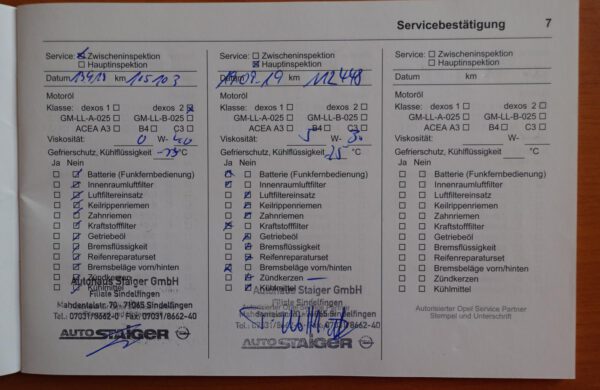 Servicebestätigung 7
Service: Zwischeninspektion
Hauptinspektion
Datum km 105103
Motoröl
Klasse: dexos 1 dexos 2
GM-LL-A-025 GM-LL-B-025
ACEA A3 B4 C3
Viskosität: 0 W-
Gefrierschutz, Kühlflüssigkeit °C
Ja Nein
Batterie (Funkfernbedienung)
Innenraumluftfilter
Luftfiltereinsatz
Keilrippenriemen
Zahnriemen
Kraftstofffilter
Getriebeöl
Bremsflüssigkeit
Reifenreparaturset
Bremsbeläge vorn/hinten
Zündkerzen
Kühlmittel
Autohaus Staiger GmbH
Filiale Sindelfingen
Mahdentalstr. 70 · 71065 Sindelfingen
Tel.: 07031/8662-0 Fax: 07031/8662-40
AUTO STAIGER
Service: Zwischeninspektion
Hauptinspektion
Datum 19.07.19 km 112448
Motoröl
Klasse: dexos 1 dexos 2
GM-LL-A-025 GM-LL-B-025
ACEA A3 B4 C3
Viskosität: 5 W- 30
Gefrierschutz, Kühlflüssigkeit -25 °C
Ja Nein
Batterie (Funkfernbedienung)
Innenraumluftfilter
Luftfiltereinsatz
Keilrippenriemen
Zahnriemen
Kraftstofffilter
Getriebeöl
Bremsflüssigkeit
Reifenreparaturset
Bremsbeläge vorn/hinten
Zündkerzen
Kühlmittel
Autohaus Staiger GmbH
Filiale Sindelfingen
71065 Sindelfingen
Tel.: 07031/8662-40
AUTO STAIGER
Service: Zwischeninspektion
Hauptinspektion
Datum km
Motoröl
Klasse: dexos 1 dexos 2
GM-LL-A-025 GM-LL-B-025
ACEA A3 B4 C3
Viskosität: W-
Gefrierschutz, Kühlflüssigkeit °C
Ja Nein
Batterie (Funkfernbedienung)
Innenraumluftfilter
Luftfiltereinsatz
Keilrippenriemen
Zahnriemen
Kraftstofffilter
Getriebeöl
Bremsflüssigkeit
Reifenreparaturset
Bremsbeläge vorn/hinten
Zündkerzen
Kühlmittel
Autorisierter Opel Service Partner
Stempel und Unterschrift